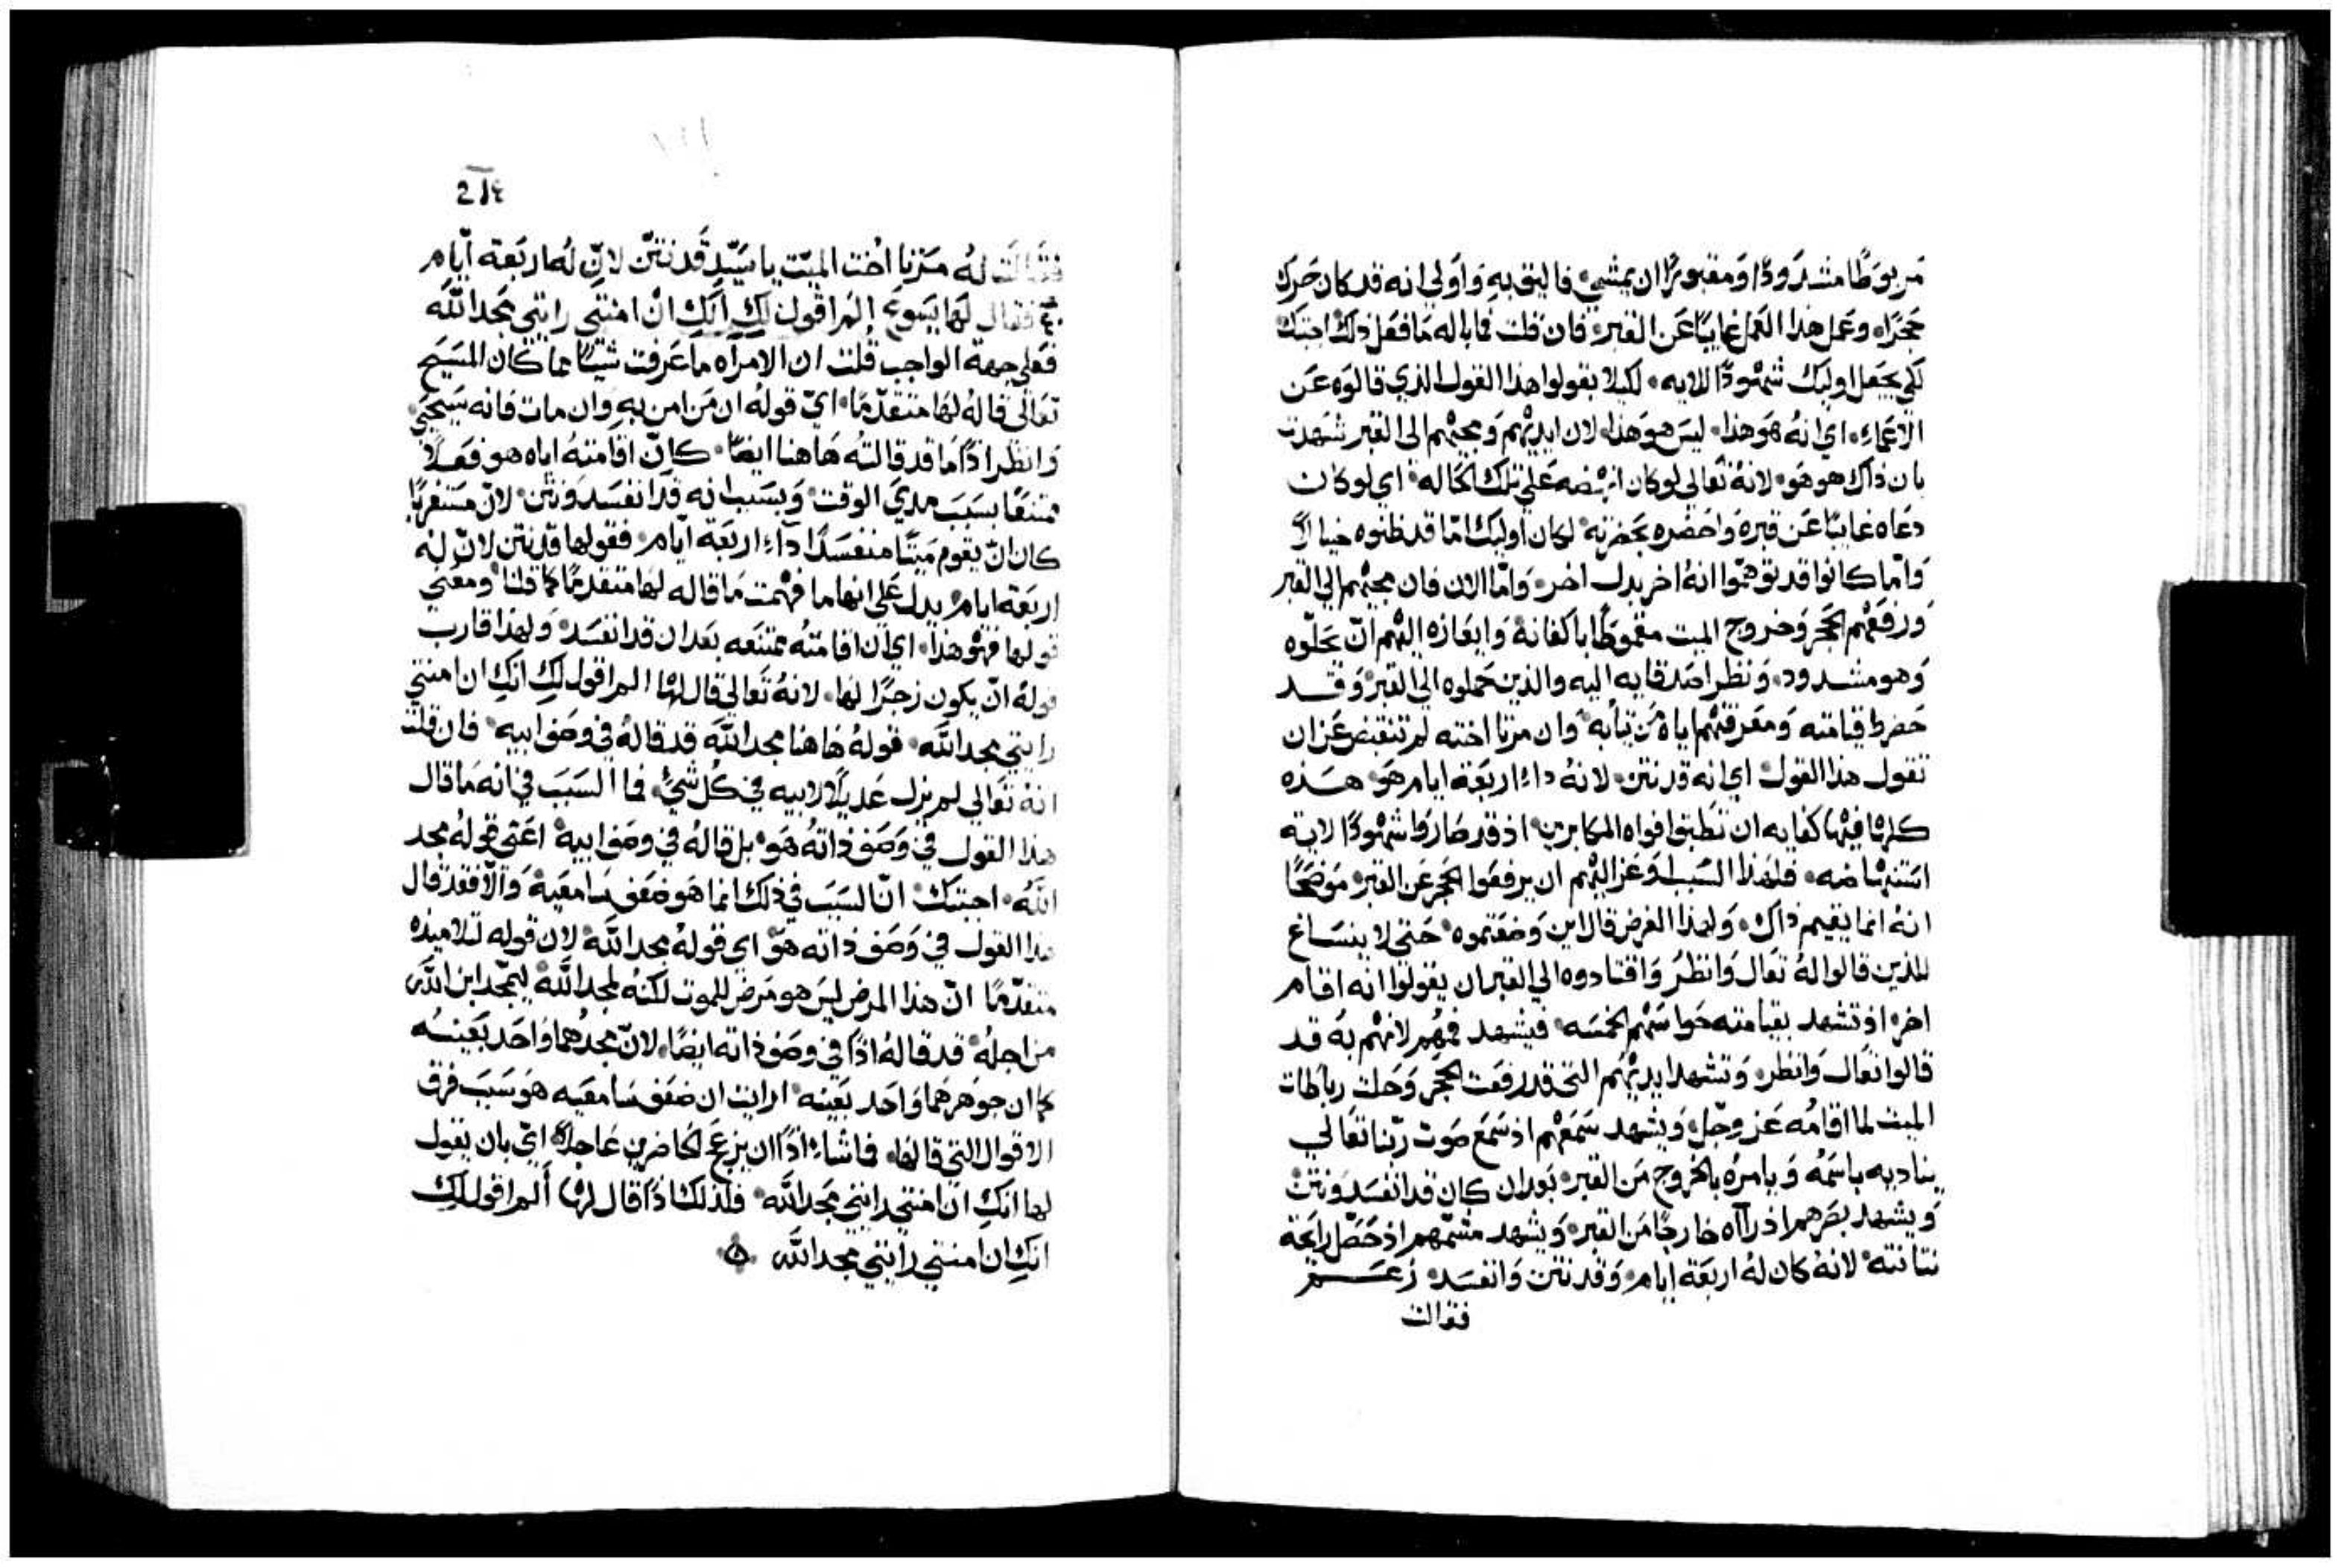 مربوطًا مشدودًا ومقبورًا ان يمشي، فاليق به واولي انه قد كان حرك
حجرًا، وعمل هذا العمل غايبًا عن القبر، فان قلت فما باله ما فعل ذلك اجبتك
لكي يجعل اوليك شهودًا للايه، لكيلا يقولوا هذا القول الذي قالوه عن
الاعما، اي انه هو هذا، ليس هو هذا، لان ايديهم ومجيهم الى القبر شهدت
بان ذاك هو هو، لانه تعالى لو كان انهضه على تلك الحاله، اي لو كان
دعاه غايبًا عن قبره واحضره بحضرته، لكان اوليك امّا قد ظنوه خيالاً
وامّا كانوا قد توهمّوا انه اخر بدل اخر، وامّا الان فان مجيهم الي القبر
ورفعهم الحجر وخروج الميت مقموطًا باكفانه وايعازه اليهم ان يحلّوه
وهو مشدود، ونظر اصدقايه اليه والذين حملوه الي القبر وقد
حضرط قيامته ومعرفتهم اياه من ثيابه، وان مرتا اخته لم تنقبض عن ان
تقول هذا القول اي انه قد نتن، لانه ذا اربعة ايام هو هذه
كلها فيها كفايه ان تطبق افواه المكابرين، اذ قد صاروا شهودًا لاية
استنهاضه، فلهذا السبب اوعز اليهم ان يرفعوا الحجر عن القبر، موضحًا
انه انما يقيم ذاك، ولهذا الغرض قال اين وضعتموه، حتى لا ينساغ
للذين قالوا له تعال وانظر واقتادوه الي القبر ان يقولوا انه اقام
اخر، اذ تشهد بقيامته حواسهم الخمسه، فيشهد فمهم لانهم به قد
قالوا تعال وانظر، وتشهد ايديهم التي قد رفعت الحجر وحلت رباطات
الميت لما اقامه عز وجّل، ويشهد سمعهم اذ سمع صوت ربّنا تعالي
يناديه باسمه ويامره بالخروج من القبر، بعد ان كان قد انفسد ونتن
ويشهد بصرهم اذ رآاه خارجًا من القبر، ويشهد مشمّهم اذ حصّل رايحة
نتانته، لانه كان له اربعة ايام، وقد نتن وانفسد، زعم
فقالت
214
فقالت له مرتا اخت الميّت يا سيّد قد نتن لانّ له اربعة ايّام
فقال لها يسوع الم اقول لك انك ان امنتي رايتي مجد الله
فعلى جهة الواجب قلت ان الامراه ما عرفت شيًا مما كان المسيح
تعالى قاله لها متقدّمًا، ايّ قوله ان من امن به وان مات فانه سيحيى،
وانظر اذًا ما قد قالته هاهنا ايضًا، كانّ اقامته اياه هو فعلاً
ممتنعًا بسبب مدي الوقت، وبسبب انه قد انفسد ونتن، لانّ مستغربًا
كان انّ يقوم ميتًا منفسدًا ذا اربعة ايّام، فقولها قد نتن لانّ له
اربعة ايام، يدل على انها ما فهمت ما قاله لها متقدمًا كما قلنا، ومعني
قولها فهو هذا، اي ان اقامته ممتنعه بعد ان قد انفسد، ولهذا قارب
قوله انّ يكون زجرًا لها، لانه تعالي قال لها الم اقول لك انك ان امنتي
رايتي مجد الله، قوله هاهنا مجد الله قد قاله في وصف ابيه، فان قلت
انه تعالي لم يزل عديلاً لابيه في كل شيٍ، فما السبب في انه ما قال
هذا القول في وصف ذاته هو، بل قاله في وصف ابيه، اعني قوله مجد
الله، اجبتك، انّ السبب في ذلك انما هو ضعف سامعيه، والاّ فقد قال
هذا القول في وصف ذاته هو، اي قوله مجد الله، لان قوله لتلاميذه
متقدّمًا انّ هذا المرض ليس هو مرض للموت لكنه لمجد الله، ليتمجّد ابن الله
من اجله، قد قاله اذًا في وصف ذاته ايضًا، لانّ مجدهما واحد بعينه
كما ان جوهرهما واحد بعينه، ارايت ان ضعف سامعيه هو سبب فرق
الاقوال التي قالها، فما شاء اذًا ان يزعج الحاضرين عاجلاً، ايّ بان يقول
لها انك ان امنتي رايتي مجد الله، فلذلك اذًا قال لها ألم اقول لك
انك ان امنتي رايتي مجد الله